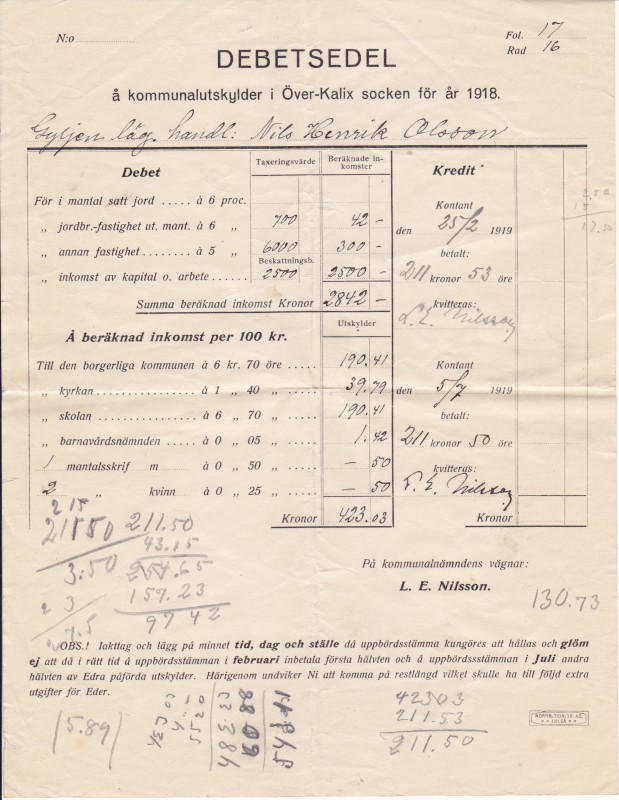 N:o
Fol. 17
Rad 16
DEBETSEDEL
å kommunalutskylder i Över-Kalix socken för år 1918.
Gyljen läg. handl: Nils Henrik Olsson
Debet
Taxeringsvärde
Beräknade inkomster
Kredit
För i mantal satt jord ..... å 6 proc.
„ jordbr.-fastighet ut. mant. å 6 „ 700 42 –
„ annan fastighet ........ å 5 „ 6000 300 –
Beskattningsb.
„ inkomst av kapital o. arbete 2500 2500 –
Summa beräknad inkomst Kronor 2842 –
Kontant
den 25/2 1919
betalt:
211 kronor 53 öre
kvitteras:
L. E. Nilsson
17.50
Å beräknad inkomst per 100 kr.
Utskylder
Till den borgerliga kommunen å 6 kr. 70 öre ..... 190.41
„ kyrkan ............ å 1 „ 40 „ ..... 39.79
„ skolan ............ å 6 „ 70 „ ..... 190.41
„ barnavårdsnämnden ..... å 0 „ 05 „ ..... 1.42
1 mantalsskrif m ..... å 0 „ 50 „ ..... – 50
2 „ kvinn ..... å 0 „ 25 „ ..... – 50
Kronor 423.03
Kontant
den 5/7 1919
betalt:
211 kronor 50 öre
kvitteras:
L. E. Nilsson
Kronor
2 15
21150 211.50
43.15
3:50 254.65
2 3 157.23
97 42
7.5
På kommunalnämndens vägnar:
L. E. Nilsson.
130.73
OBS.! Iakttag och lägg på minnet tid, dag och ställe då uppbördsstämma kungöres att hållas och glöm
ej att då i rätt tid å uppbördsstämman i februari inbetala första hälvten och å uppbördsstämman i Juli andra
hälvten av Edra påförda utskylder. Härigenom undviker Ni att komma på restlängd vilket skulle ha till följd extra
utgifter för Eder.
15.89
42303
211.53
211.50